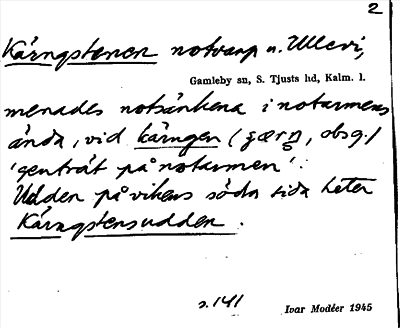 2
Kärngstenen notvarp n. Ullevi,
Gamleby sn, S. Tjusts hd, Kalm. l.
menades notsänkena i notarmens
ända, vid kärngen (
'genträt på notarmen'.
Udden på vikens södra sida heter
Kärngstensudden.
s. 141
Ivar Modéer 1945